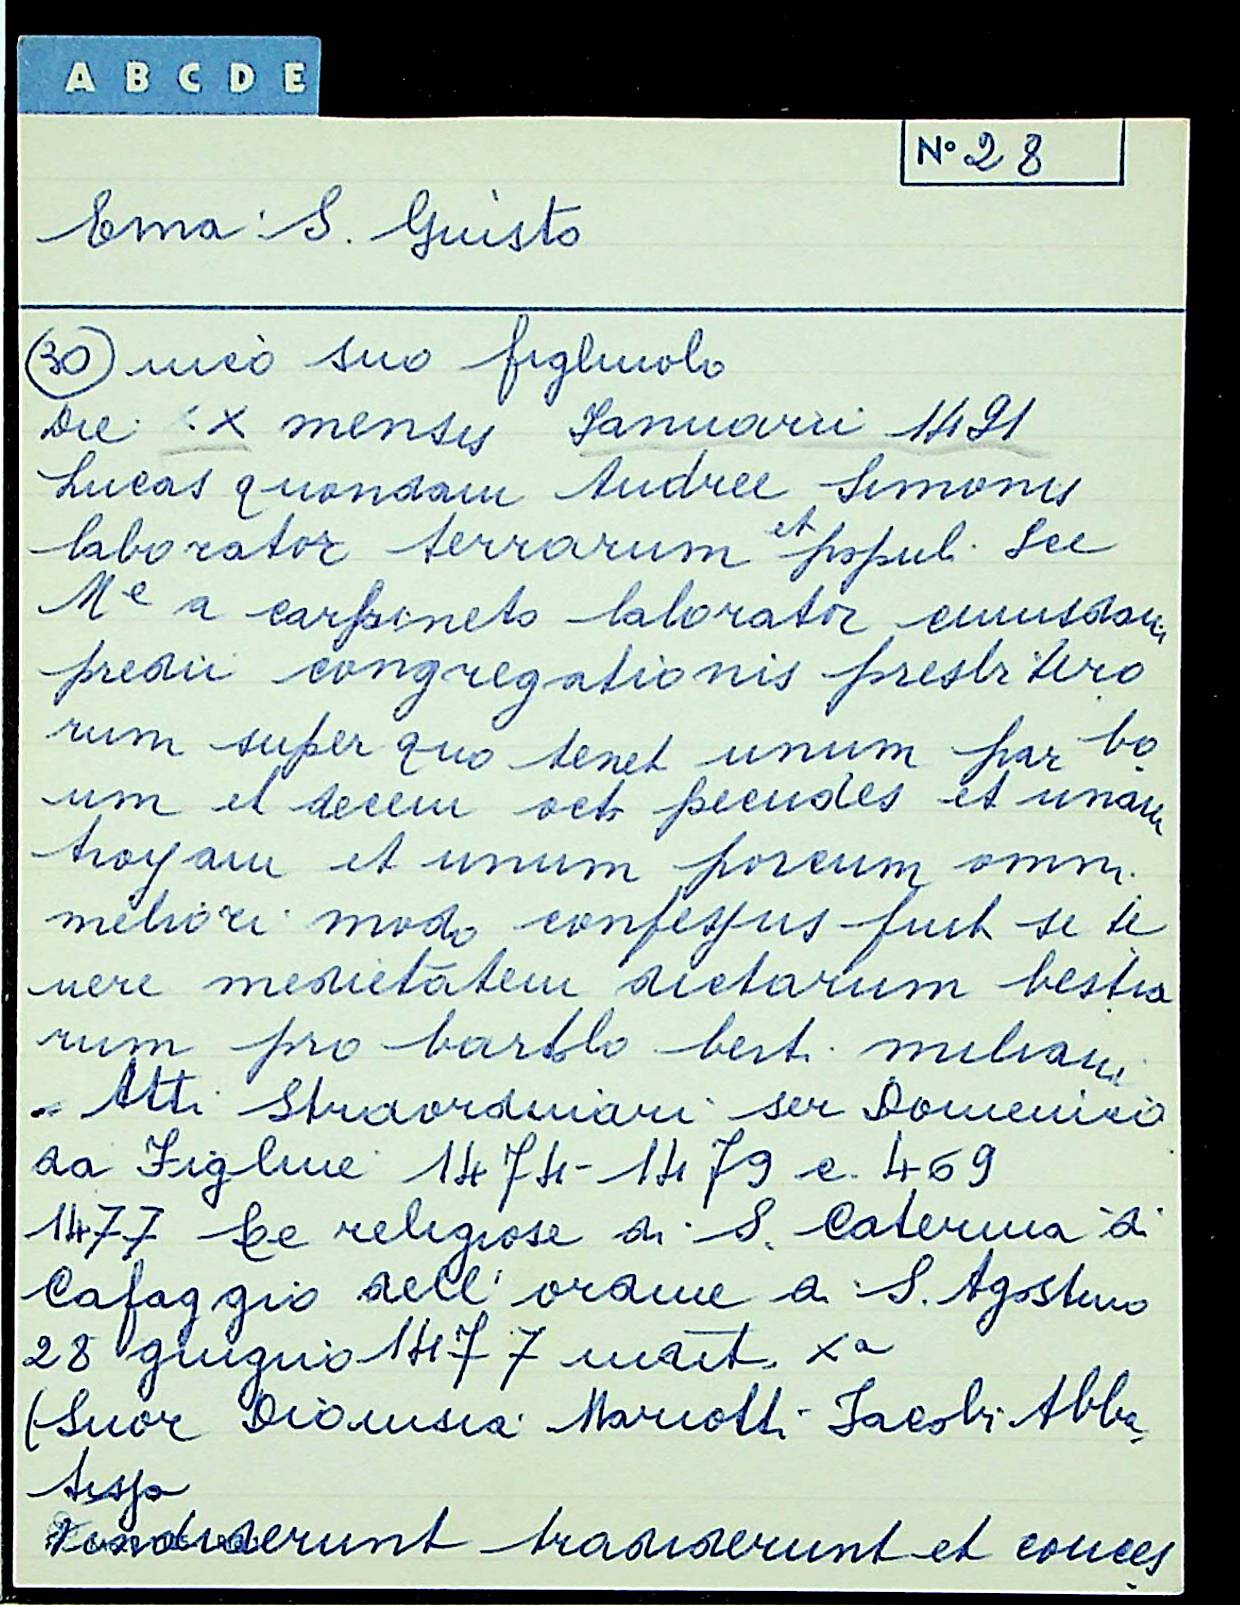 A B C D E
N° 28
Ema: S. Giusto
(30) nicò suo figliuolo
Die XX mensis Januarii 1491
Lucas quondam Andree Simonis
laborator terrarum et popul. See
Me a carpineto laborator cuiusdam
predii congregationis presbitero
rum super quo tenet unum par bo
um et decem octo pecudes et unam
troyam et unum porcum omni
meliori modo confessus fuit se te
nere medietatem dictarum bestia
rum pro bartolo best. miliani
Atti Straordinari ser Domenico
da Figline 1474-1479 c. 469
1477 Le religiose di S. Caterina di
Cafaggio dell' ordine di S. Agostino
28 giugno 1477 indit. Xa
(Suor Dionisia Mariotti Jacobi Abba
tissa
vendiderunt tradiderunt et conces